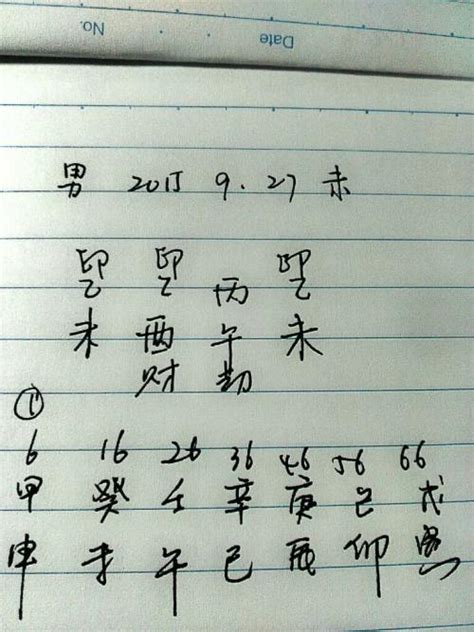 No. Date
男 2015 9.27 未
印 印 印
乙 乙 丙 乙
未 酉 午 未
财 劫
①
6 16 26 36 46 56 66
甲 癸 壬 辛 庚 己 戊
申 未 午 巳 辰 卯 寅